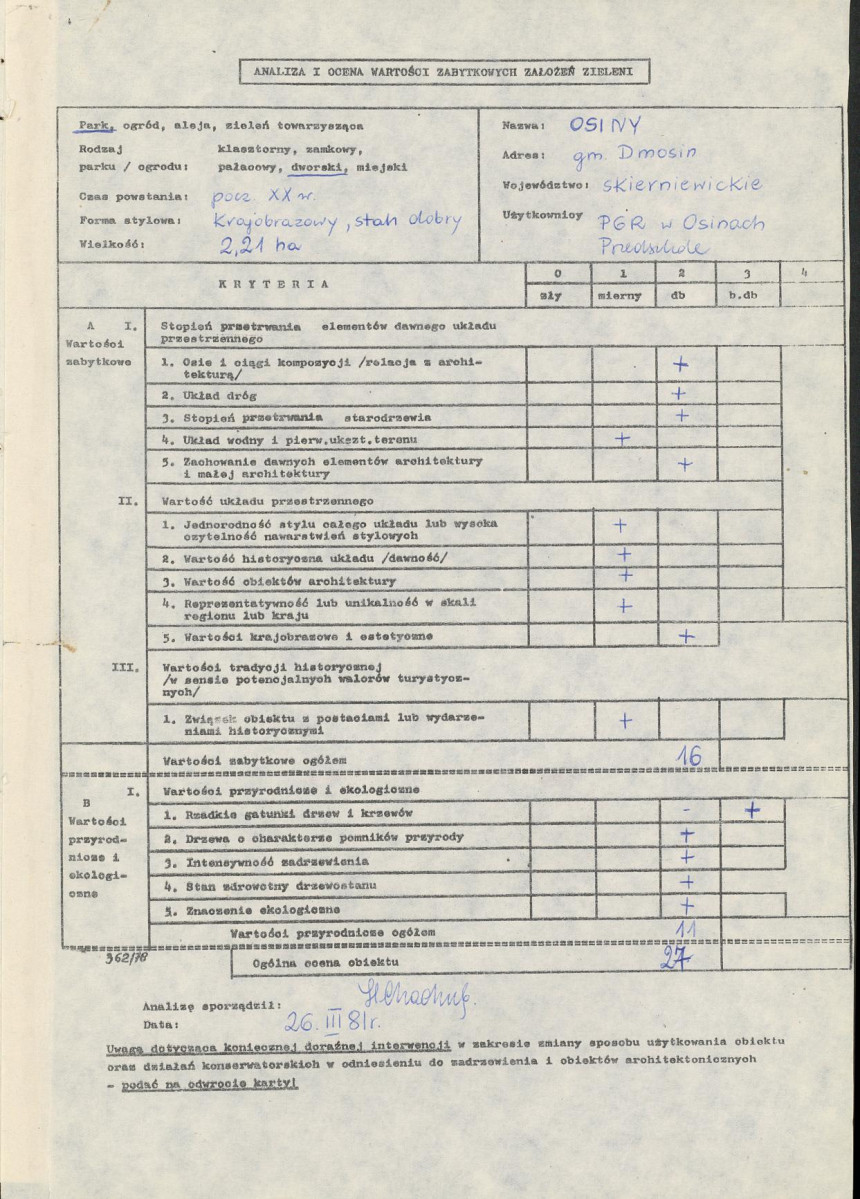 ANALIZA I OCENA WARTOŚCI ZABYTKOWYCH ZAŁOŻEŃ ZIELENI
Park, ogród, aleja, zieleń towarzysząca
Rodzaj klasztorny, zamkowy,
parku / ogrodu: pałacowy, dworski, miejski
Czas powstania: pocz XX w.
Forma stylowa: Krajobrazowy, stan dobry
Wielkość: 2,21 ha
Nazwa: OSINY
Adres: gm. Dmosin
Województwo: skierniewickie
Użytkownicy PGR w Osinach
Przedszkole
KRYTERIA 0 1 2 3 4
zły mierny db b.db
A I. Stopień przetrwania elementów dawnego układu
przestrzennego
Wartości
zabytkowe
1. Osie i ciągi kompozycji /relacja z archi-
tekturą/ +
2. Układ dróg +
3. Stopień przetrwania starodrzewia +
4. Układ wodny i pierw.ukszt.terenu +
5. Zachowanie dawnych elementów architektury
i małej architektury +
II. Wartość układu przestrzennego
1. Jednorodność stylu całego układu lub wysoka
czytelność nawarstwień stylowych +
2. Wartość historyczna układu /dawność/ +
3. Wartość obiektów architektury +
4. Reprezentatywność lub unikalność w skali
regionu lub kraju +
5. Wartości krajobrazowe i estetyczne +
III. Wartości tradycji historycznej
/w sensie potencjalnych walorów turystycz-
nych/
1. Związek obiektu z postaciami lub wydarze-
niami historycznymi +
Wartości zabytkowe ogółem 16
B I. Wartości przyrodnicze i ekologiczne
Wartości
przyrod-
nicze i
ekologi-
czne
1. Rzadkie gatunki drzew i krzewów - +
2. Drzewa o charakterze pomników przyrody +
3. Intensywność zadrzewienia +
4. Stan zdrowotny drzewostanu +
5. Znaczenie ekologiczne +
Wartości przyrodnicze ogółem 11
362/78
Ogólna ocena obiektu 27
Analizę sporządził:
Data: 26. III 81r.
Uwaga dotycząca koniecznej doraźnej interwencji w zakresie zmiany sposobu użytkowania obiektu
oraz działań konserwatorskich w odniesieniu do zadrzewienia i obiektów architektonicznych
- podać na odwrocie karty!